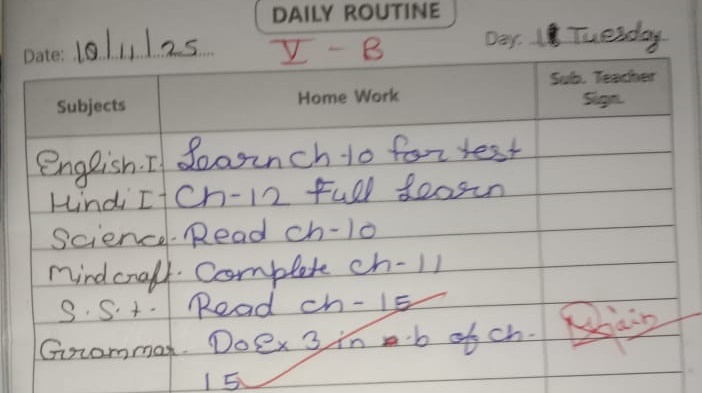 DAILY ROUTINE
Date: 10/11/25 V - B Day: Tuesday
Subjects Home Work Sub. Teacher Sign.
English.I Learn ch-10 for test
Hindi I - Ch-12 Full Learn
Science. Read ch-10
Mindcraft. Complete ch-11
S.S.t. Read ch-15
Grammar. Do Ex 3 in n.b of ch-
15